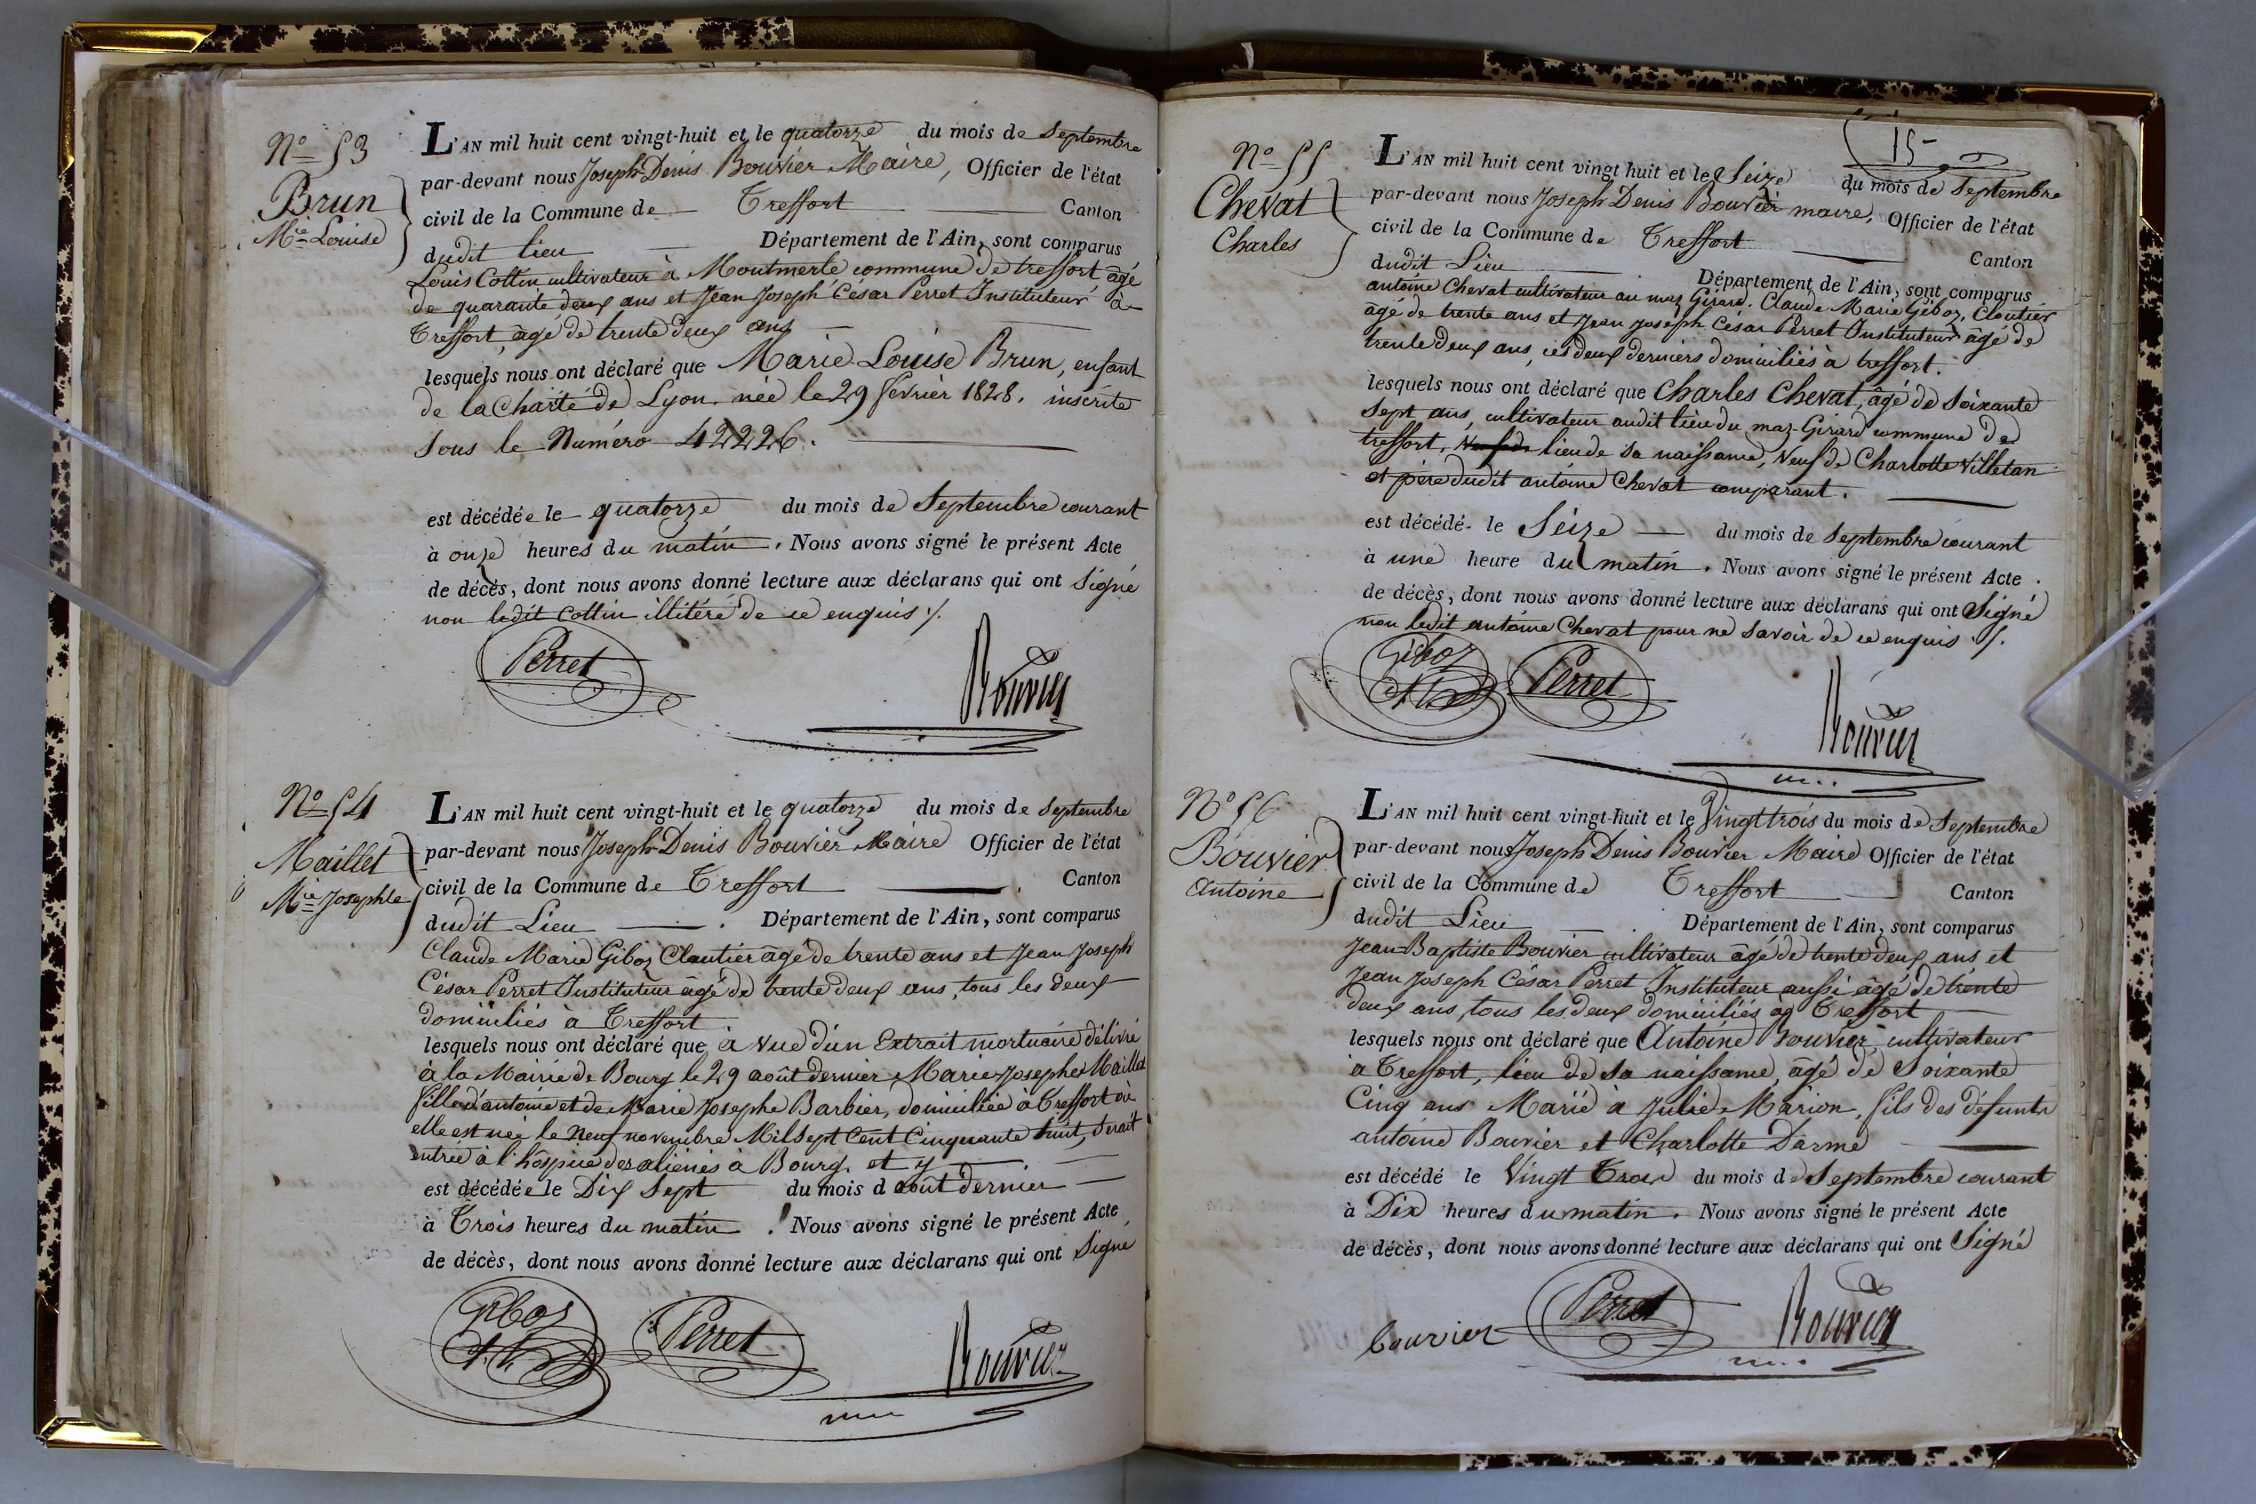 N° 53
Brun
Mie Louise
L'AN mil huit cent vingt-huit et le quatorze du mois de Septembre
par-devant nous Joseph Denis Bouvier Maire, Officier de l'état
civil de la Commune de Treffort Canton
dudit lieu Département de l'Ain, sont comparus
Louis Cottin cultivateur à Montmerle commune de treffort âgé
de quarante deux ans et Jean Joseph César Perret Instituteur à
Treffort, âgé de trente deux ans
lesquels nous ont déclaré que Marie Louise Brun, enfant
de la Charité de Lyon, née le 29 février 1828. inscrite
sous le Numéro 42226.
est décédée le quatorze du mois de Septembre courant
à onze heures du matin. Nous avons signé le présent Acte
de décès, dont nous avons donné lecture aux déclarans qui ont signé
non ledit Cottin illitéré de ce enquis ./.
Perret
Bouvier
N° 54
Maillet
Mie Josephte
L'AN mil huit cent vingt-huit et le quatorze du mois de Septembre
par-devant nous Joseph Denis Bouvier Maire Officier de l'état
civil de la Commune de Treffort Canton
dudit Lieu . Département de l'Ain, sont comparus
Claude Marie Giboz Cloutier âgé de trente ans et Jean Joseph
César Perret Instituteur âgé de trente deux ans, tous les deux
domiciliés à Treffort
lesquels nous ont déclaré que à vue d'un Extrait mortuaire délivré
à la Mairie de Bourg le 29 août dernier, Marie Josephe Maillet
fille d'antoine et de Marie Josephe Barbier, domiciliée à Treffort où
elle est née le Neuf novembre Mil Sept Cent Cinquante huit, serait
entrée à l'hôspice des aliénés à Bourg. et y
est décédée le Dix Sept du mois d août dernier
à Trois heures du matin. Nous avons signé le présent Acte
de décès, dont nous avons donné lecture aux déclarans qui ont Signé
Giboz
Perret
Bouvier
15
N° 55
Chevat
Charles
L'AN mil huit cent vingt huit et le Seize du mois de Septembre
par-devant nous Joseph Denis Bouvier maire, Officier de l'état
civil de la Commune de Treffort Canton
dudit Lieu Département de l'Ain, sont comparus
antoine Chevat cultivateur au maz Girard. Claude Marie Giboz, Cloutier
âgé de trente ans et Jean Joseph César Perret Instituteur âgé de
trente deux ans, ces deux derniers domiciliés à treffort.
lesquels nous ont déclaré que Charles Chevat, âgé de Soixante
Sept ans, cultivateur audit lieu du maz-Girard commune de
treffort, lieu de sa naissance, Veuf de Charlotte Villetan
et père dudit antoine Chevat comparant.
est décédé le Seize du mois de Septembre courant
à une heure du matin. Nous avons signé le présent Acte
de décès, dont nous avons donné lecture aux déclarans qui ont Signé
non ledit antoine Chevat pour ne savoir de ce enquis ./.
Giboz
Perret
Bouvier
N° 56
Bouvier
Antoine
L'AN mil huit cent vingt-huit et le Vingt trois du mois de Septembre
par-devant nous Joseph Denis Bouvier Maire Officier de l'état
civil de la Commune de Treffort Canton
dudit Lieu . Département de l'Ain, sont comparus
Jean-Baptiste Bouvier cultivateur âgé de trente deux ans et
Jean Joseph César Perret Instituteur aussi âgé de trente
deux ans, tous les deux domiciliés à Treffort
lesquels nous ont déclaré que Antoine Bouvier cultivateur
à Treffort, lieu de sa naissance, âgé de Soixante
Cinq ans Marié à Julie Marion, fils des défunts
antoine Bouvier et Charlotte Darme
est décédé le Vingt Trois du mois de Septembre courant
à Dix heures du matin. Nous avons signé le présent Acte
de décès, dont nous avons donné lecture aux déclarans qui ont Signé
bouvier
Perret
Bouvier